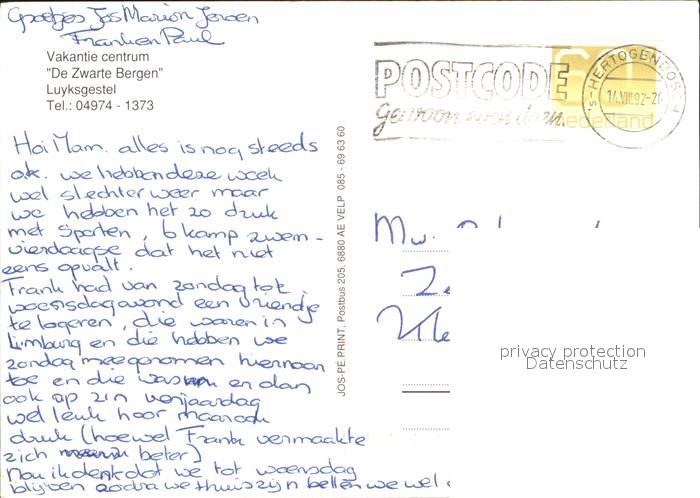 Groetjes Jos Marion Jeroen
Frank en Paul
Vakantie centrum
"De Zwarte Bergen"
Luyksgestel
Tel.: 04974 - 1373
Hoi Mam. alles is nog steeds
ok. we hebben deze week
wel slechter weer maar
we hebben het zo druk
met sporten, 6 kamp zwem-
vierdaagse dat het niet
eens opvalt.
Frank had van zondag tot
woensdagavond een vriendje
te logeren, die waren in
Limburg en die hebben we
zondag meegenomen hiernaar
toe en die was en dan
ook op z'n verjaardag
wel leuk hoor maar ook
druk (hoewel Frank vermaakte
zich beter)
Nou ik denk dat we tot woensdag
blijven zodra we thuis zijn bellen we wel
JOS-PÉ PRINT, Postbus 205, 6880 AE VELP 085 - 69 63 60
POSTCODE
gewoon even doen.
60
nederland
's-HERTOGENBOSCH
14.VIII.92-20
Mw.
privacy protection
Datenschutz